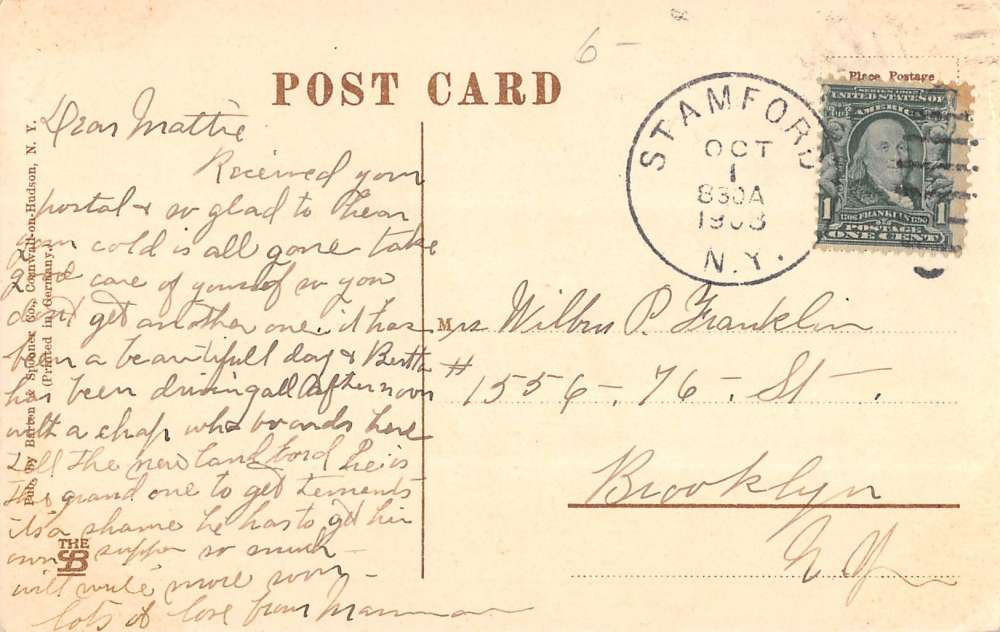 6-
POST CARD
Place Postage
SERIES 1902
UNITED STATES OF
AMERICA
1 1706 FRANKLIN 1790 1
POSTAGE
ONE CENT
STAMFORD
OCT
1
830A
1908
N.Y.
Dear Mattie
Received your
postal & so glad to hear
your cold is all gone take
good care of yourself so you
dont get another one. it has
been a beautifull day & Bertha
has been driving all afternoon
with a chap who boards here
tell the new land lord he is
the grand one to get tenents
its a shame he has to get his
own supper so much
will write more soon -
lots of love from Mamma
Mrs Wilbur P. Franklin
# 1556 - 76 - St.
Brooklyn
N Y
Pub. by Barton & Spooner Co., Cornwall-on-Hudson, N. Y.
(Printed in Germany.)
THE
SB